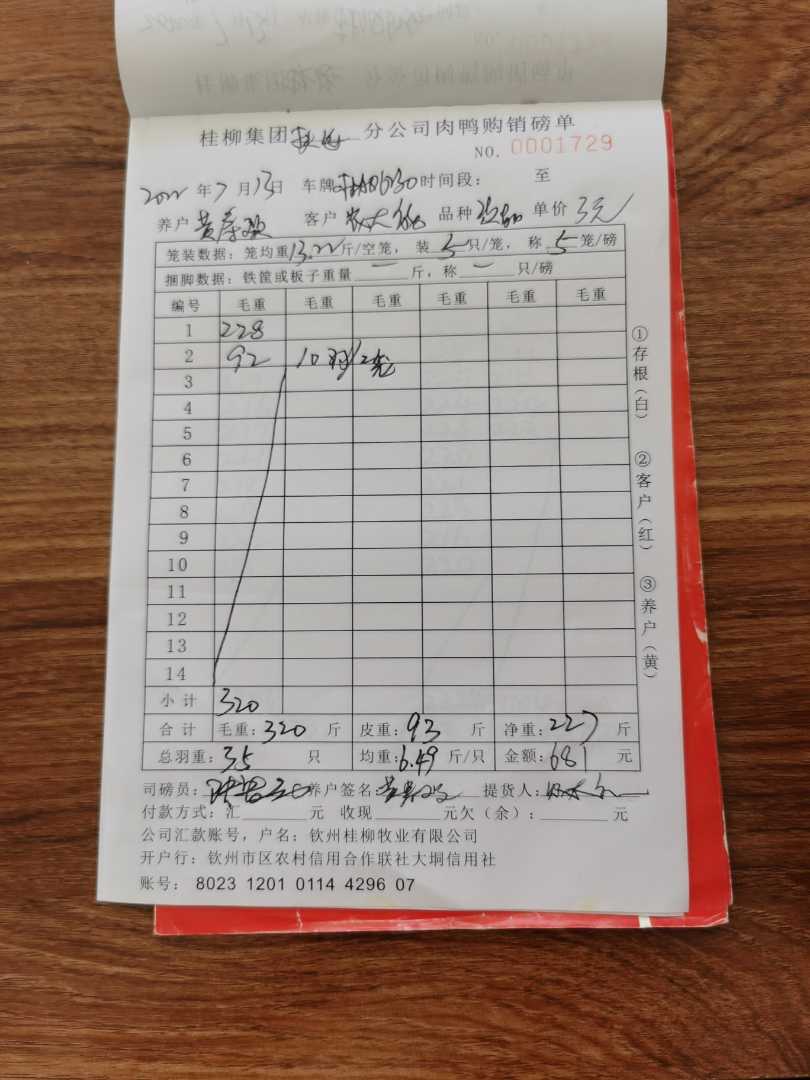 桂柳集团 分公司肉鸭购销磅单
NO. 0001729
2022年7月13日 车牌 时间段： 至
养户 客户 品种 单价 3元
笼装数据：笼均重13.22斤/空笼，装5只/笼，称5笼/磅
捆脚数据：铁筐或板子重量—斤，称—只/磅
编号 毛重 毛重 毛重 毛重 毛重 毛重
1 228
2 92 10羽/2笼
3
4
5
6
7
8
9
10
11
12
13
14
小计 320
合计 毛重：320斤 皮重：93斤 净重：227斤
总羽重：35只 均重：6.49斤/只 金额：681元
司磅员： 养户签名： 提货人：
付款方式：汇______元 收现______元欠（余）：______元
公司汇款账号，户名：钦州桂柳牧业有限公司
开户行：钦州市区农村信用合作联社大垌信用社
账号： 8023 1201 0114 4296 07
①存根（白）
②客户（红）
③养户（黄）